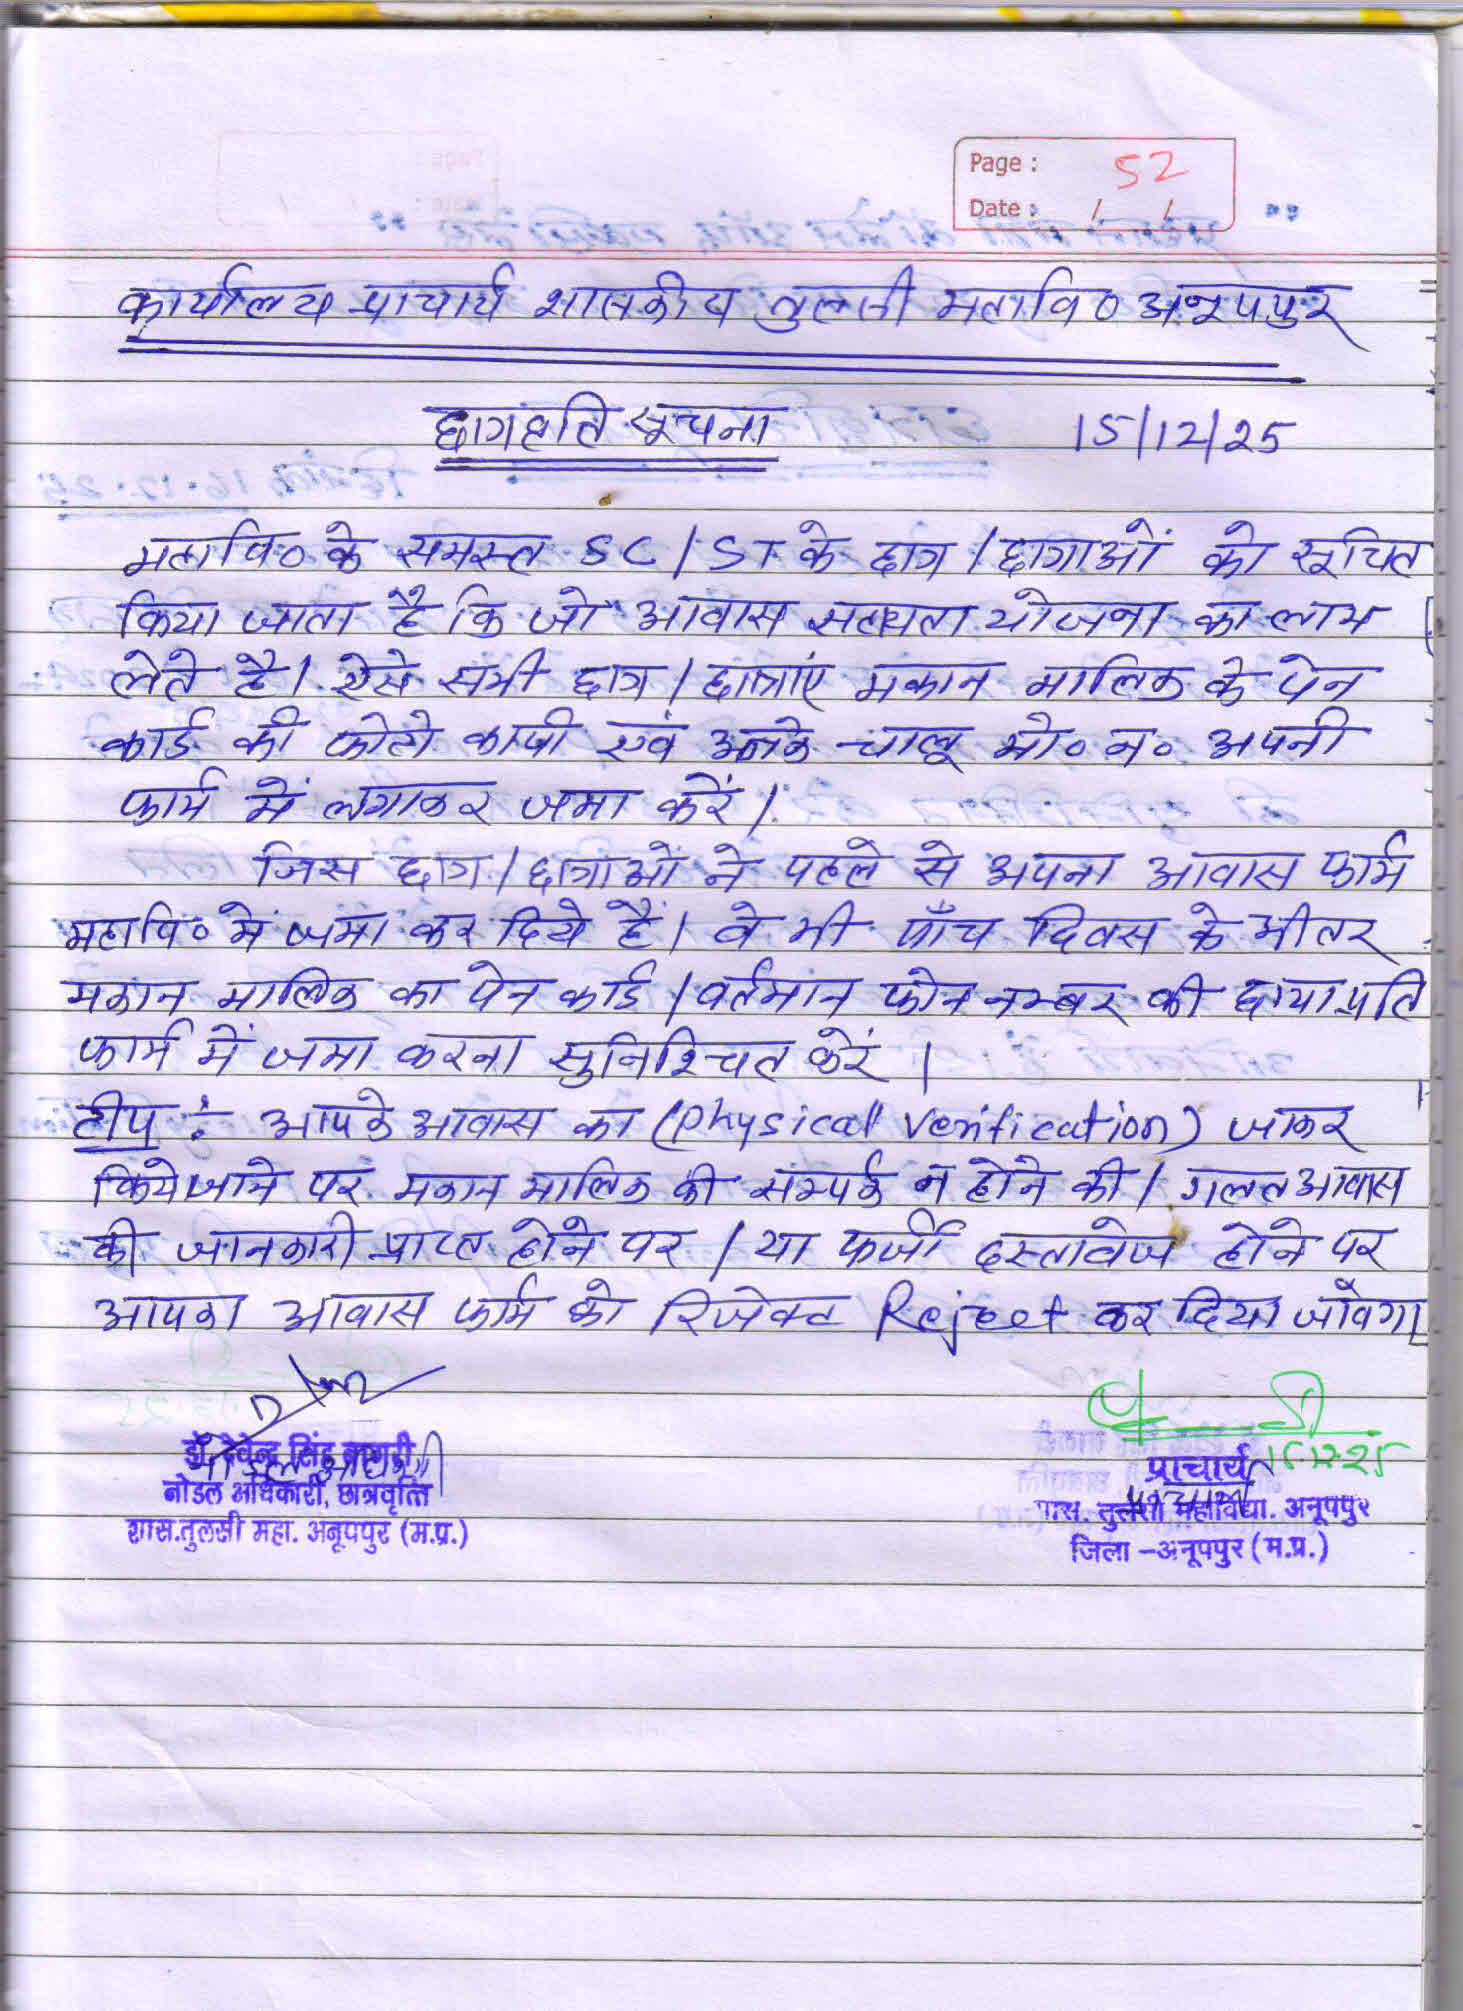 Page : 52
Date : / /
कार्यालय प्राचार्य शासकीय तुलसी महावि० अनूपपुर
छात्रवृत्ति सूचना 15/12/25
महावि० के समस्त SC/ST के छात्र/छात्राओं को सूचित
किया जाता है कि जो आवास सहायता योजना का लाभ
लेते है। ऐसे सभी छात्र/छात्राएं मकान मालिक के पेन
कार्ड की फोटो कापी एवं उनके चालू मो० न० अपनी
फार्म में लगाकर जमा करें।
जिस छात्र/छात्राओं ने पहले से अपना आवास फार्म
महावि० में जमा कर दिये है। वे भी पाँच दिवस के भीतर
मकान मालिक का पेन कार्ड/वर्तमान फोन नम्बर की छायाप्रति
फार्म में जमा करना सुनिश्चित करें।
टीप :- आपके आवास का (Physical verification) जाकर
किये जाने पर मकान मालिक की सम्पर्क न होने की/गलत आवास
की जानकारी प्राप्त होने पर/या फर्जी दस्तावेज होने पर
आपका आवास फार्म को रिजेक्ट Reject कर दिया जावेगा
डॉ. देवेन्द्र सिंह बागरी
नोडल अधिकारी, छात्रवृत्ति
शास.तुलसी महा. अनूपपुर (म.प्र.)
15.12.25
प्राचार्य
शास. तुलसी महाविद्या. अनूपपुर
जिला -अनूपपुर (म.प्र.)